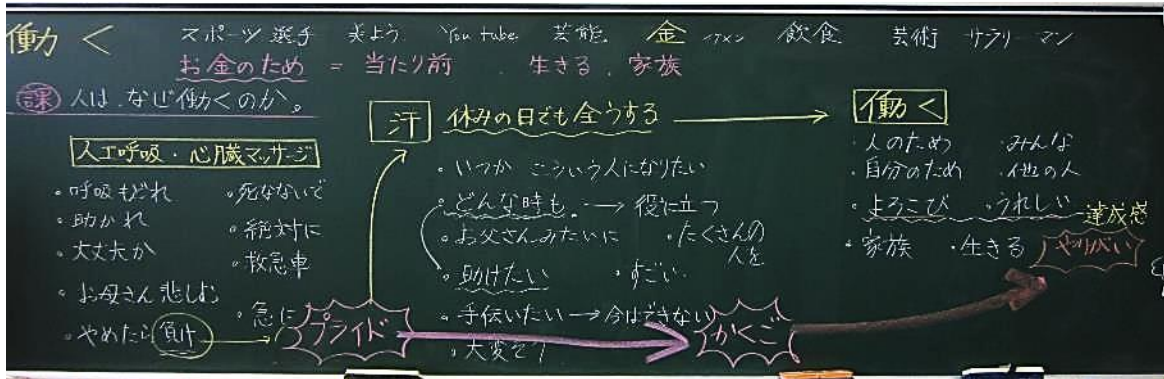 働く
スポーツ選手 You tube 芸能 金 イケメン 飲食 芸術 サラリーマン
お金のため = 当たり前 . 生きる . 家族
課 人は、なぜ働くのか。
人工呼吸・心臓マッサージ
・呼吸もどれ ・死なないで
・助かれ ・絶対に
・大丈夫か ・救急車
・お母さん悲しむ
・やめたら負け ・急に
プライド
汗 休みの日でも全うする
・いつか こういう人になりたい
・どんな時も → 役に立つ
・お父さんみたいに ・たくさんの人を
・助けたい ・すごい
・手伝いたい → 今はできない
・大変そう
かくご
働く
・人のため ・みんな
・自分のため ・他の人
・よろこび ・うれしい 達成感
・家族 ・生きる やりがい